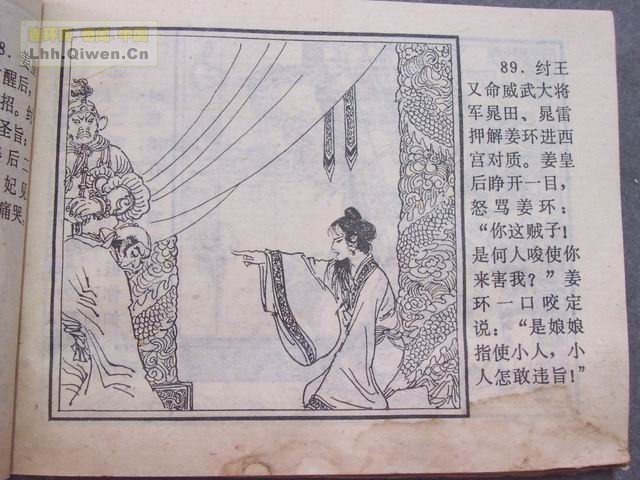 Lhh.Qiwen.Cn
醒后，
招。
圣旨：
后二
妃
痛哭
89．纣王
又命威武大将
军晁田、晁雷
押解姜环进西
宫对质。姜皇
后睁开一目，
怒骂姜环：
“你这贼子！
是何人唆使你
来害我？”姜
环一口咬定
说：“是娘娘
指使小人，小
人怎敢违旨！”